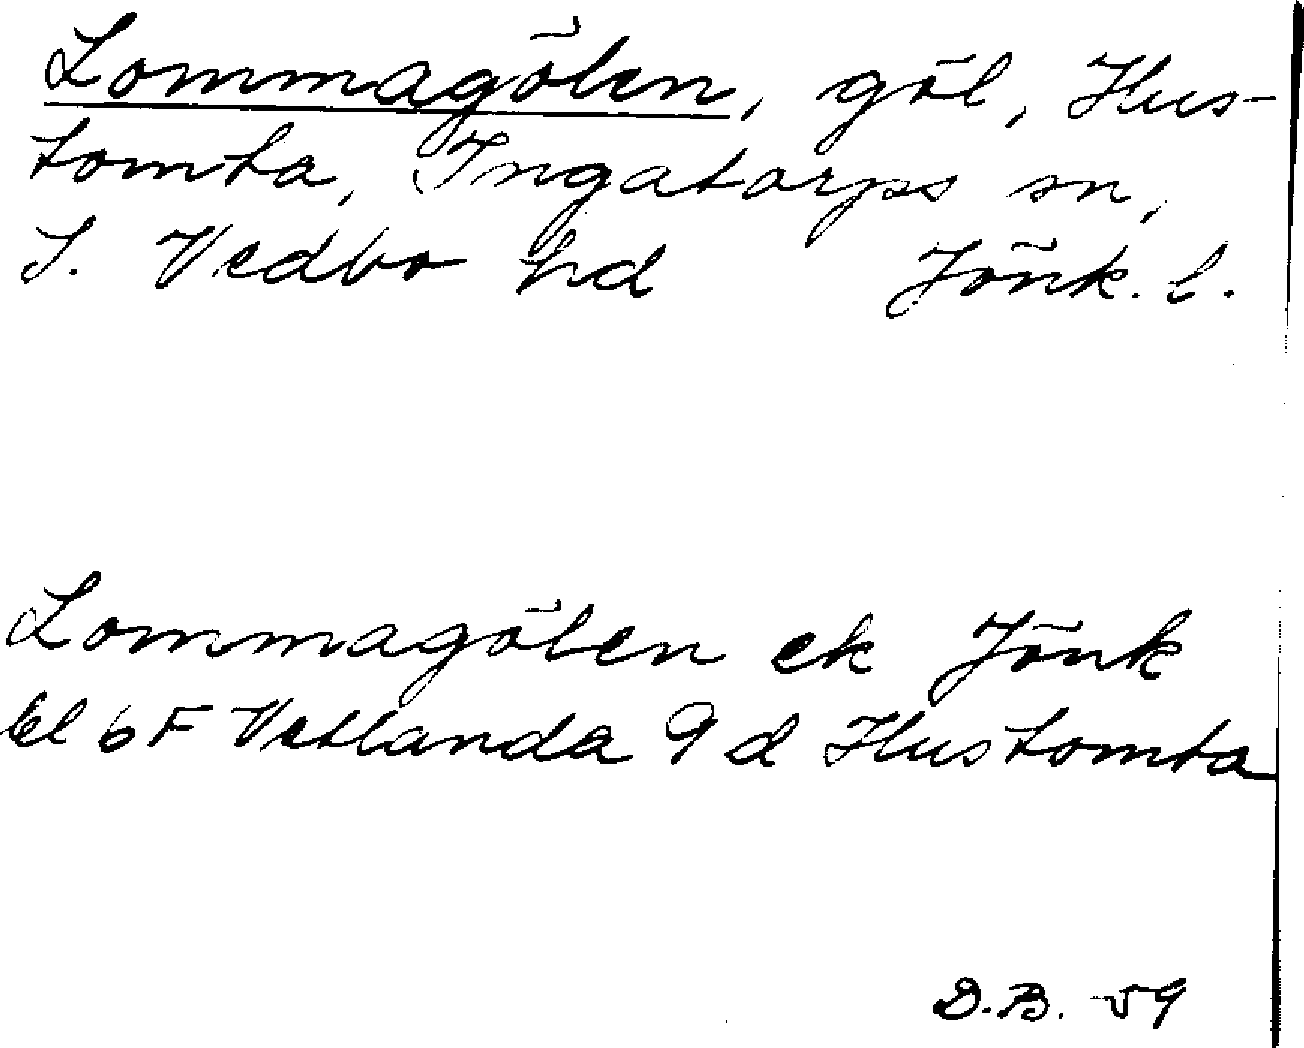 Lommagölen, göl, Hus-
tomta, Ingatorps sn,
S. Vedbo hd Jönk. l.
Lommagölen ek Jönk
bl 6F Vetlanda 9 d Hustomta
D.B. -59